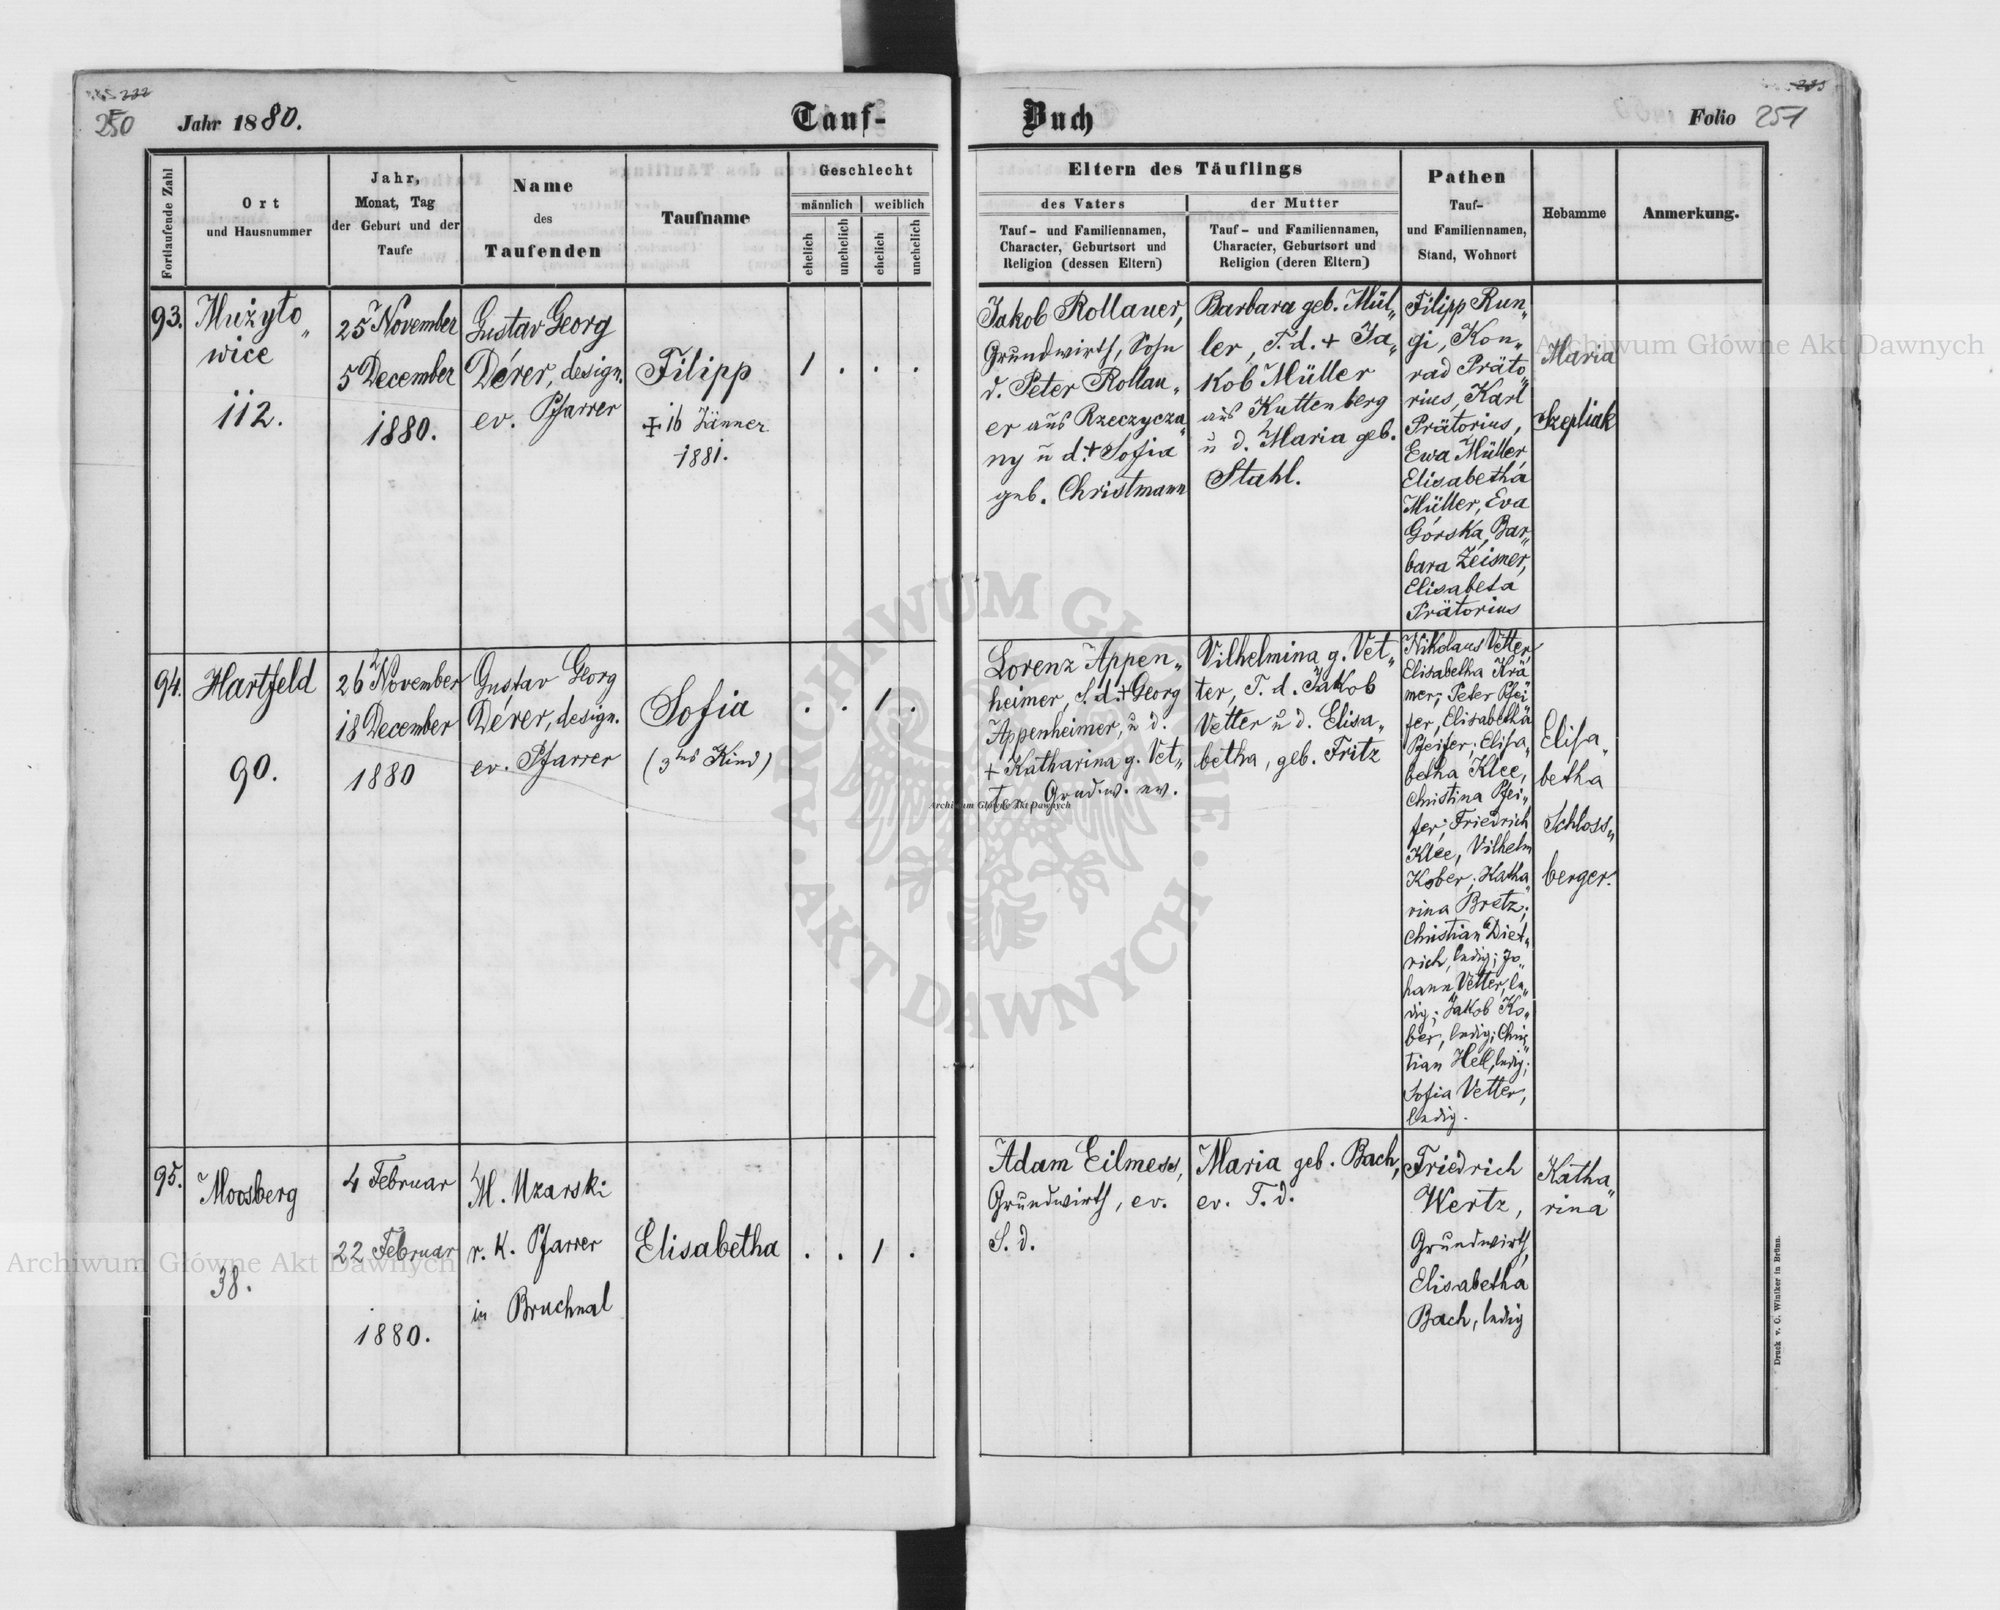 250
Jahr 1880.
Tauf-
Buch
Folio 251
Fortlaufende Zahl
Ort
und Hausnummer
Jahr,
Monat, Tag
der Geburt und der
Taufe
Name
des
Taufenden
Taufname
Geschlecht
männlich
weiblich
ehelich
unehelich
ehelich
unehelich
Eltern des Täuflings
des Vaters
Tauf- und Familiennamen,
Character, Geburtsort und
Religion (dessen Eltern)
der Mutter
Tauf- und Familiennamen,
Character, Geburtsort und
Religion (deren Eltern)
Pathen
Tauf-
und Familiennamen,
Stand, Wohnort
Hebamme
Anmerkung.
93.
Mużyło„
wice
112.
25 November
5 December
1880.
Gustav Georg
Dérer, design.
ev. Pfarrer
Filipp
+ 16 Jänner
1881.
1 . . .
Jakob Rollauer,
Grundwirth, Sohn
d. Peter Rollau„
er aus Rzeczycza„
ny u d. + Sofia
geb. Christmann
Barbara geb. Mül„
ler, T. d. + Ja„
kob Müller
aus Kuttenberg
u d. Maria geb.
Stahl.
Filipp Run„
gi, Kon„
rad Präto„
rius, Karl
Prätorius,
Ewa Müller,
Elisabetha
Müller, Eva
Górska, Bar„
bara Zeisner,
Elisabeta
Prätorius
Maria
Szepliak
94.
Hartfeld
90.
26 November
18 December
1880
Gustav Georg
Dérer, design.
ev. Pfarrer
Sofia
(3tes Kind)
. . 1 .
Lorenz Appen„
heimer, S. d. + Georg
Appenheimer, u d.
+ Katharina g. Vet„
ter, Grndw. ev.
Vilhelmina g. Vet„
ter, T. d. Jakob
Vetter u d. Elisa„
betha, geb. Fritz
Nikolaus Vetter,
Elisabetha Krä
mer; Peter Pfei
fer, Elisabetha
Pfeifer; Elisa„
betha Klee,
Christina Pfei„
fer; Friedrich
Klee, Vilhelm
Kober; Katha„
rina Bretz;
Christian Diet„
rich, ledig; Jo„
hann Vetter, le„
dig; Jakob Ko„
ber, ledig; Chris„
tian Hell, ledig;
Sofia Vetter,
ledig.
Elisa„
betha
Schloss„
berger.
95.
Moosberg
38.
4 Februar
22 Februar
1880.
M. Uzarski
r. k. Pfarrer
in Bruchnal
Elisabetha
. . 1 .
Adam Eilmess,
Grundwirth, ev.
S. d.
Maria geb. Bach,
ev. T. d.
Friedrich
Wertz,
Grundwirth,
Elisabetha
Bach, ledig
Katha„
rina
Druck v. C. Winiker in Brünn.
Archiwum Główne Akt Dawnych
Archiwum Główne Akt Dawnych
Archiwum Główne Akt Dawnych
ARCHIWUM GŁÓWNE · AKT DAWNYCH ·